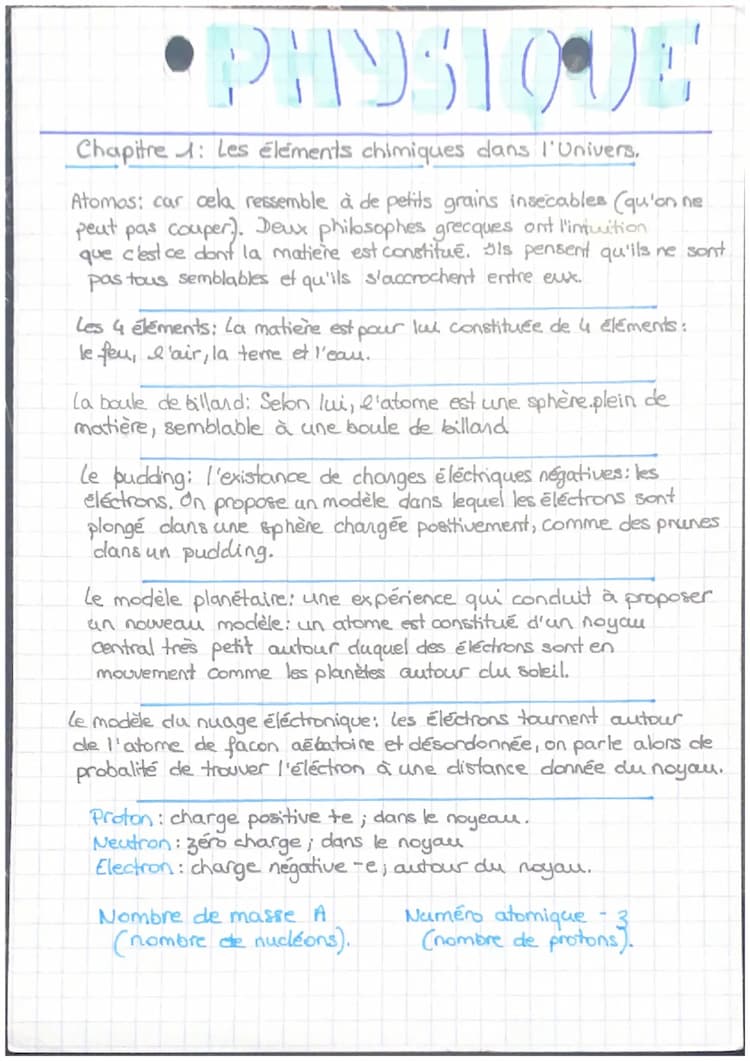 • PHYSIQUE
Chapitre 1: Les éléments chimiques dans l'Univers.
Atomos: car cela ressemble à de petits grains insécables (qu'on ne
peut pas couper). Deux philosophes grecques ont l'intuition
que c'est ce dont la matière est constitué. Ils pensent qu'ils ne sont
pas tous semblables et qu'ils s'accrochent entre eux.
Les 4 éléments: La matière est pour lui constituée de 4 éléments:
le feu, l'air, la terre et l'eau.
La boule de billard: Selon lui, l'atome est une sphère plein de
matière, semblable à une boule de billard
Le pudding: l'existance de charges éléctriques négatives: les
éléctrons. On propose un modèle dans lequel les éléctrons sont
plongé dans une sphère chargée positivement, comme des prunes
dans un pudding.
Le modèle planétaire: une expérience qui conduit à proposer
un nouveau modèle: un atome est constitué d'un noyau
central très petit autour duquel des éléctrons sont en
mouvement comme les planètes autour du soleil.
Le modèle du nuage éléctronique: Les éléctrons tournent autour
de l'atome de façon aéatoire et désordonnée, on parle alors de
probalité de trouver l'éléctron à une distance donnée du noyau.
Proton: charge positive +e; dans le noyeau.
Neutron: zéro charge; dans le noyau
Electron: charge négative -e; autour du noyau.
Nombre de masse A
(nombre de nucléons).
Numéro atomique - z
(nombre de protons).